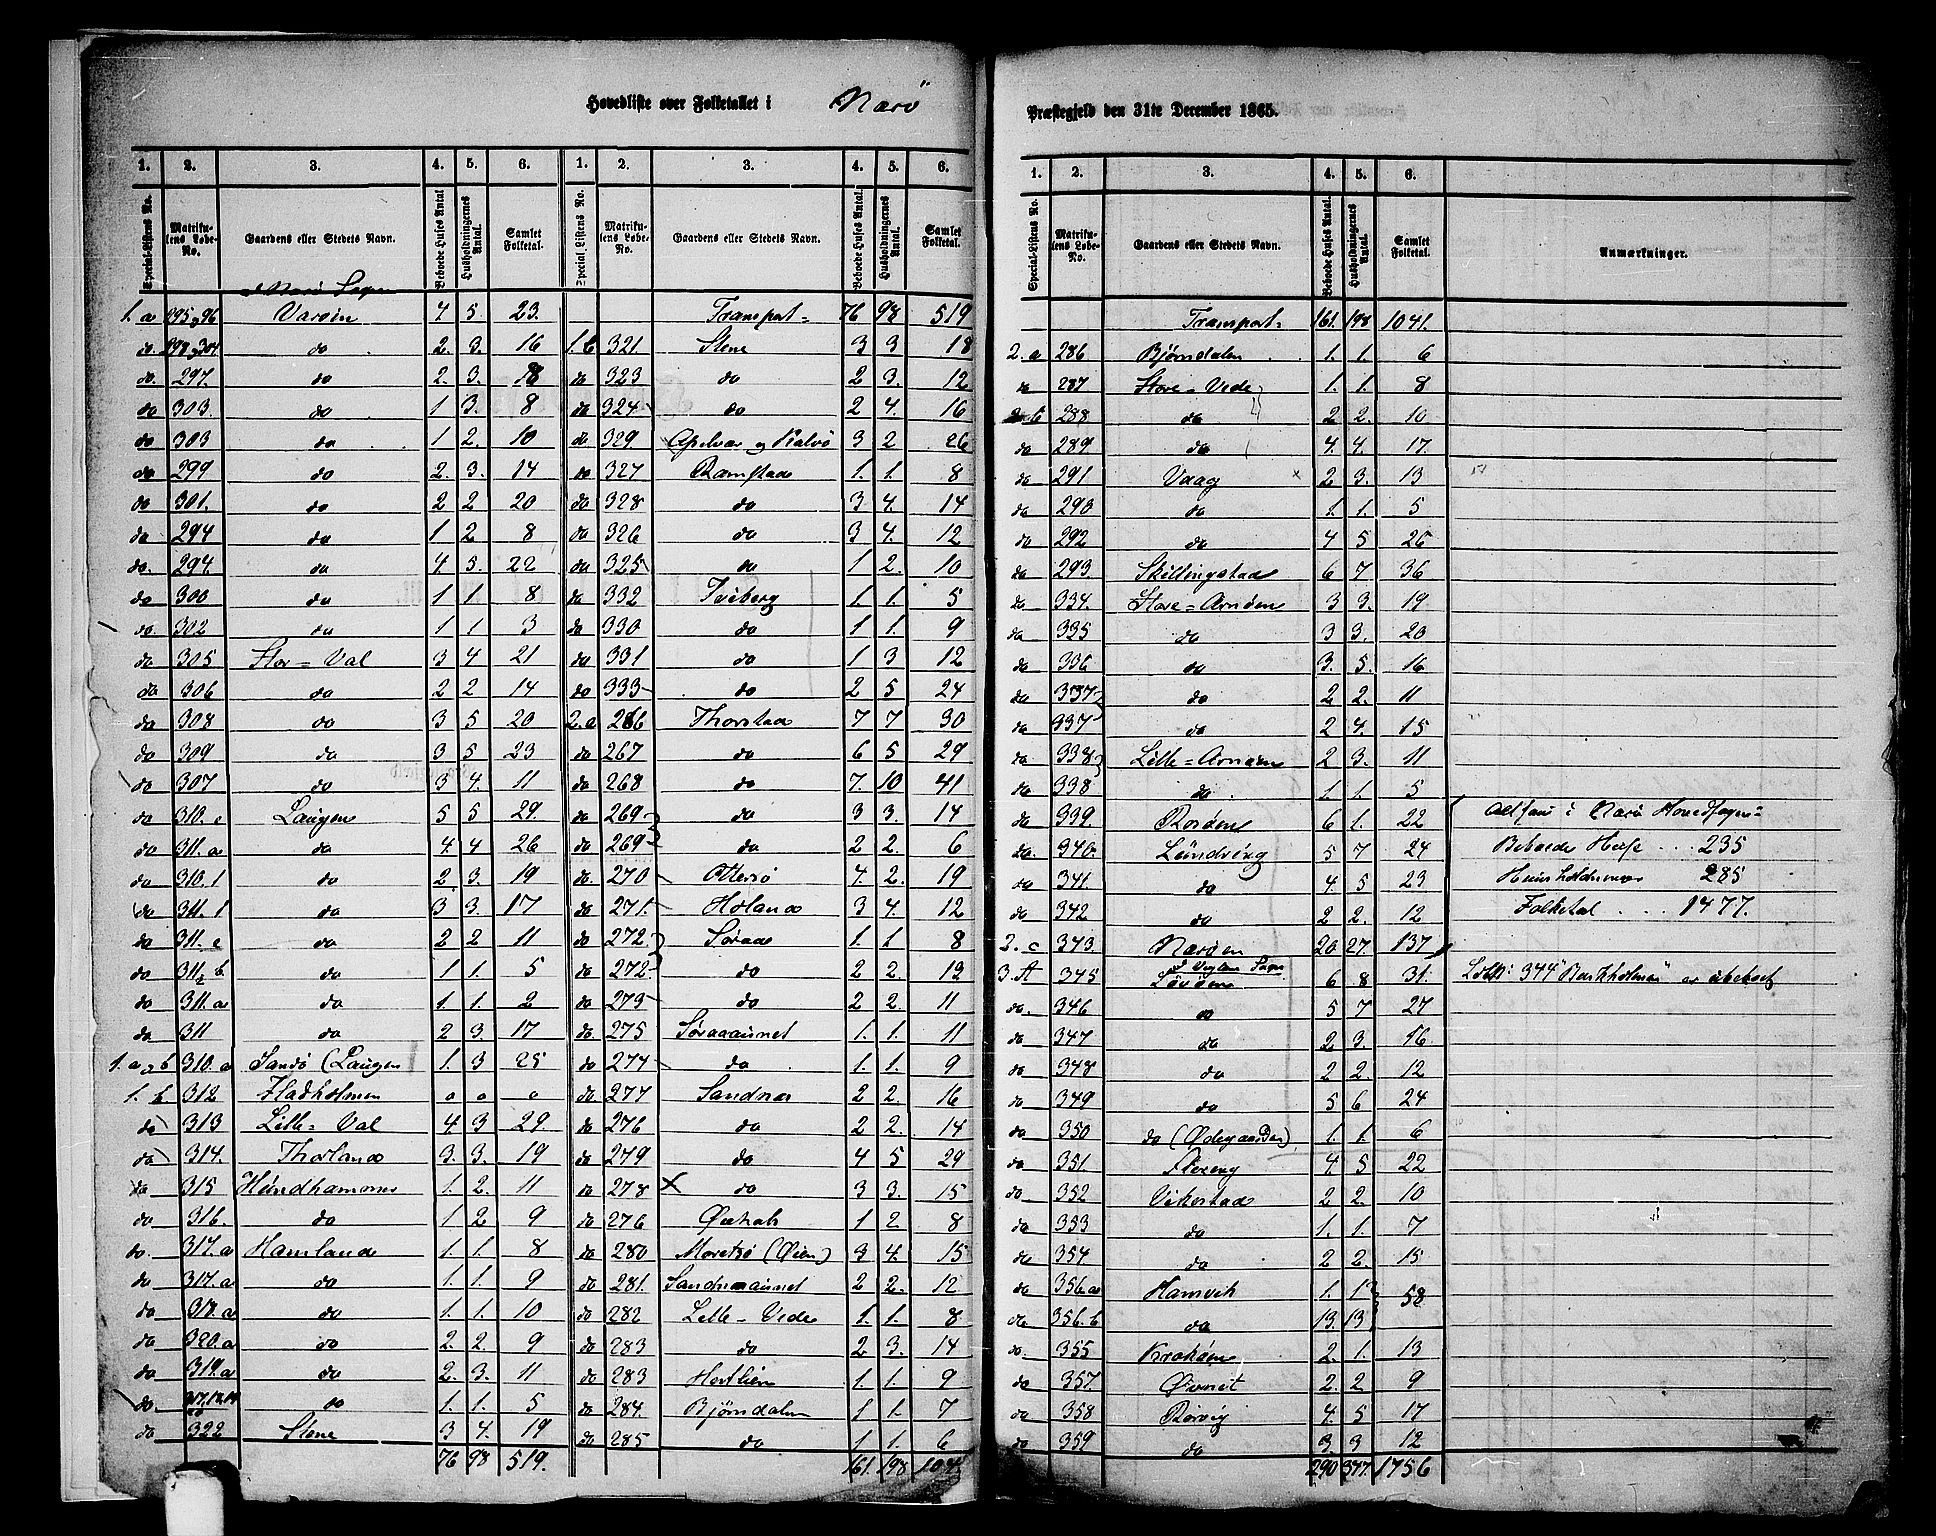 Hovedliste over Folketallet i Nærö Præstegjeld den 31te December 1865.
1. 2. 3. 4. 5. 6. 1. 2. 3. 4. 5. 6.
Special-Listens No. Matrikulens Løbe-No. Gaardens eller Stedets Navn. Beboede Huses Antal Husholdningernes Antal. Samlet Folketal. Special-Listens No. Matrikulens Løbe-No. Gaardens eller Stedets Navn. Beboede Huses Antal. Husholdningernes Antal. Samlet Folketal.
Nærö Sogn
1. a 295 og 96 Varøen 4 5. 23. Transport= 76 98 519
do. do 2. 3. 16 1. b 321 Stene 3 3 18
do. 297. do 2. 3. 18 do 323 do 2 3. 12
do 303. do 1 3. 8 do 324 do 2 4. 16
do 303 do 1 2. 10 do. 329 Apelvær og Kalvø 3 2 26
do 299 do 2. 3. 14 do 327 Ramstad 1. 1. 8
do 301. do 2 2 20 do 328 do 3 4. 14
do 294 do 1 2 8 do 326 do 3 4. 12
do. 294. do 4 5. 22 do 325 do 1 2. 10
do 300 do 1 1. 8 do 332 Fiskerg 1. 1. 5
do. 302 do 1 1 3 do 330 do 1 1. 9
do 305 Stor=Val 3 4 21 do 331 do 1 3 12
do 306 do 2 2 14 do 333 do 2 5 24
do 308 do 3 5 20 2. a 266 Thorstad 7 7 30
do 309 do 3 5 23 do 267 do 6 5 29
do 307 do 3 4. 11 do 268 do 7. 10 41
do 310. e Laugen 5 5 29. do 269 do 3 3. 14
do 311. a do 4. 4 26 do 269 do 2 2. 6
do 310. 1 do 2 3. 19 do. 270 Ottersö 4. 2. 19
do 311. 1 do 3 3. 17 do. 271. Hofland 3 4. 12
do 311. e do 2 2 11 do 272. Søraa 1. 1 8
do 311. b do 1 1. 5 do 272 do 2 2. 12
do 311. a do 1. 1. 2 do 273 do 2 2. 11
do 311 do 2 3. 17 do 275 Søraaaunet 1. 1. 11
1. a og b 310. a Sandö (Laugen 1. 3 25 do 274 do 1. 1. 9
1. b 312 Fladholmen o o o do 277 Sandnæs 2 2. 16
do 313 Lille=Val 4 3 29 do 276 do 2 2. 14
do 314. Thorland 3. 3. 19 do 279 do 4 5 29
do 315 Hundhammer 1. 2. 11 do 278 do 3 3. 15
do 316. do 1 2 9 do 276 1 2 8
do. 317. a Hamland 1. 1. 8 do 280 Moretrö (Øien) 3 4. 15
do 317. a do 1. 1. 9 do 281. Sandnæsaunet 2 2. 12
do 318. a do 1. 1. 10 do 282 Lille=Vede 1. 1. 8
do 320. a do 2. 2. 9 do 283 do 2 3. 14
do 319. a do 2. 3. 11 do 283 Hestlien 1. 1. 9
do. do 1. 1. 5 do 284. Bjørndalen 1 1. 7
do 322 Stene 3 4. 19 do 285 do 1 1. 6
76 98 519. 161. 198 1041
1. 2. 3. 4. 5. 6.
Special-Listens No. Matrikulens Løbe-No. Gaardens eller Stedets Navn. Beboede Huses Antal. Husholdningernes Antal. Samlet Folketal. Anmærkninger.
Transport= 161. 198 1041.
2. a 286 Bjørndalen 1. 1. 6
do 287 Store=Vede 1. 1. 8
2. b 288 do 2 2. 10
do 289 do 4. 4. 17.
do 291 Vaag 2 3. 13
do 290 do 1. 1. 5
do 292 do 4 5 26
do 293. Skillingstad 6 7 36
do 334. Store=Arnøen 3 3. 19
do 335 do 3 3. 20
do 336 do 3. 5. 16
do 337 do 2 2. 11
do 337 do 2 4. 15
do 338 Lille=Arnøen 2 3. 11
do 338 do 1. 1. 5
do 339. Rosøen 6 1. 22 Altsaa i Nærö Hovedsogn=
do. 340. Lundring 5 7 24 Beboede Huse . . . 235
do 341. do 4. 5 23 Huusholdninger 285
do 342 do 2 2. 12 Folketal . . . 1477.
2. c 343 Nærøen 20 27. 137
3. A 345 Vigten Sogn 6 8 31. LNo: 344 "Barkholmen" er ubeboet
do. 346 do 5 7 27
do 347 do 2 3. 16
do 348 do 2 2. 12
do 349 do 5 6 24
do 350 do (Ødegaarden) 1. 1. 6
do 351. 4. 5 22
do 352 Vikestad 2 2. 10
do 353 do 1. 1. 7
do 354 do 2 2. 15
do 356. a Hamvik 1. 1 58
do 356. b do 13. 13
do. 355 Krakøen 2. 1. 13
do 357. Øvret 2. 2 9
do 358 Rørvig 4. 5 17
do 359 do 3. 3 12
290 377. 1756